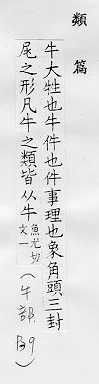 類篇
牛大牲也牛件也件事理也象角頭三封
尾之形凡牛之類皆从牛魚尤切文一(牛部 B9)